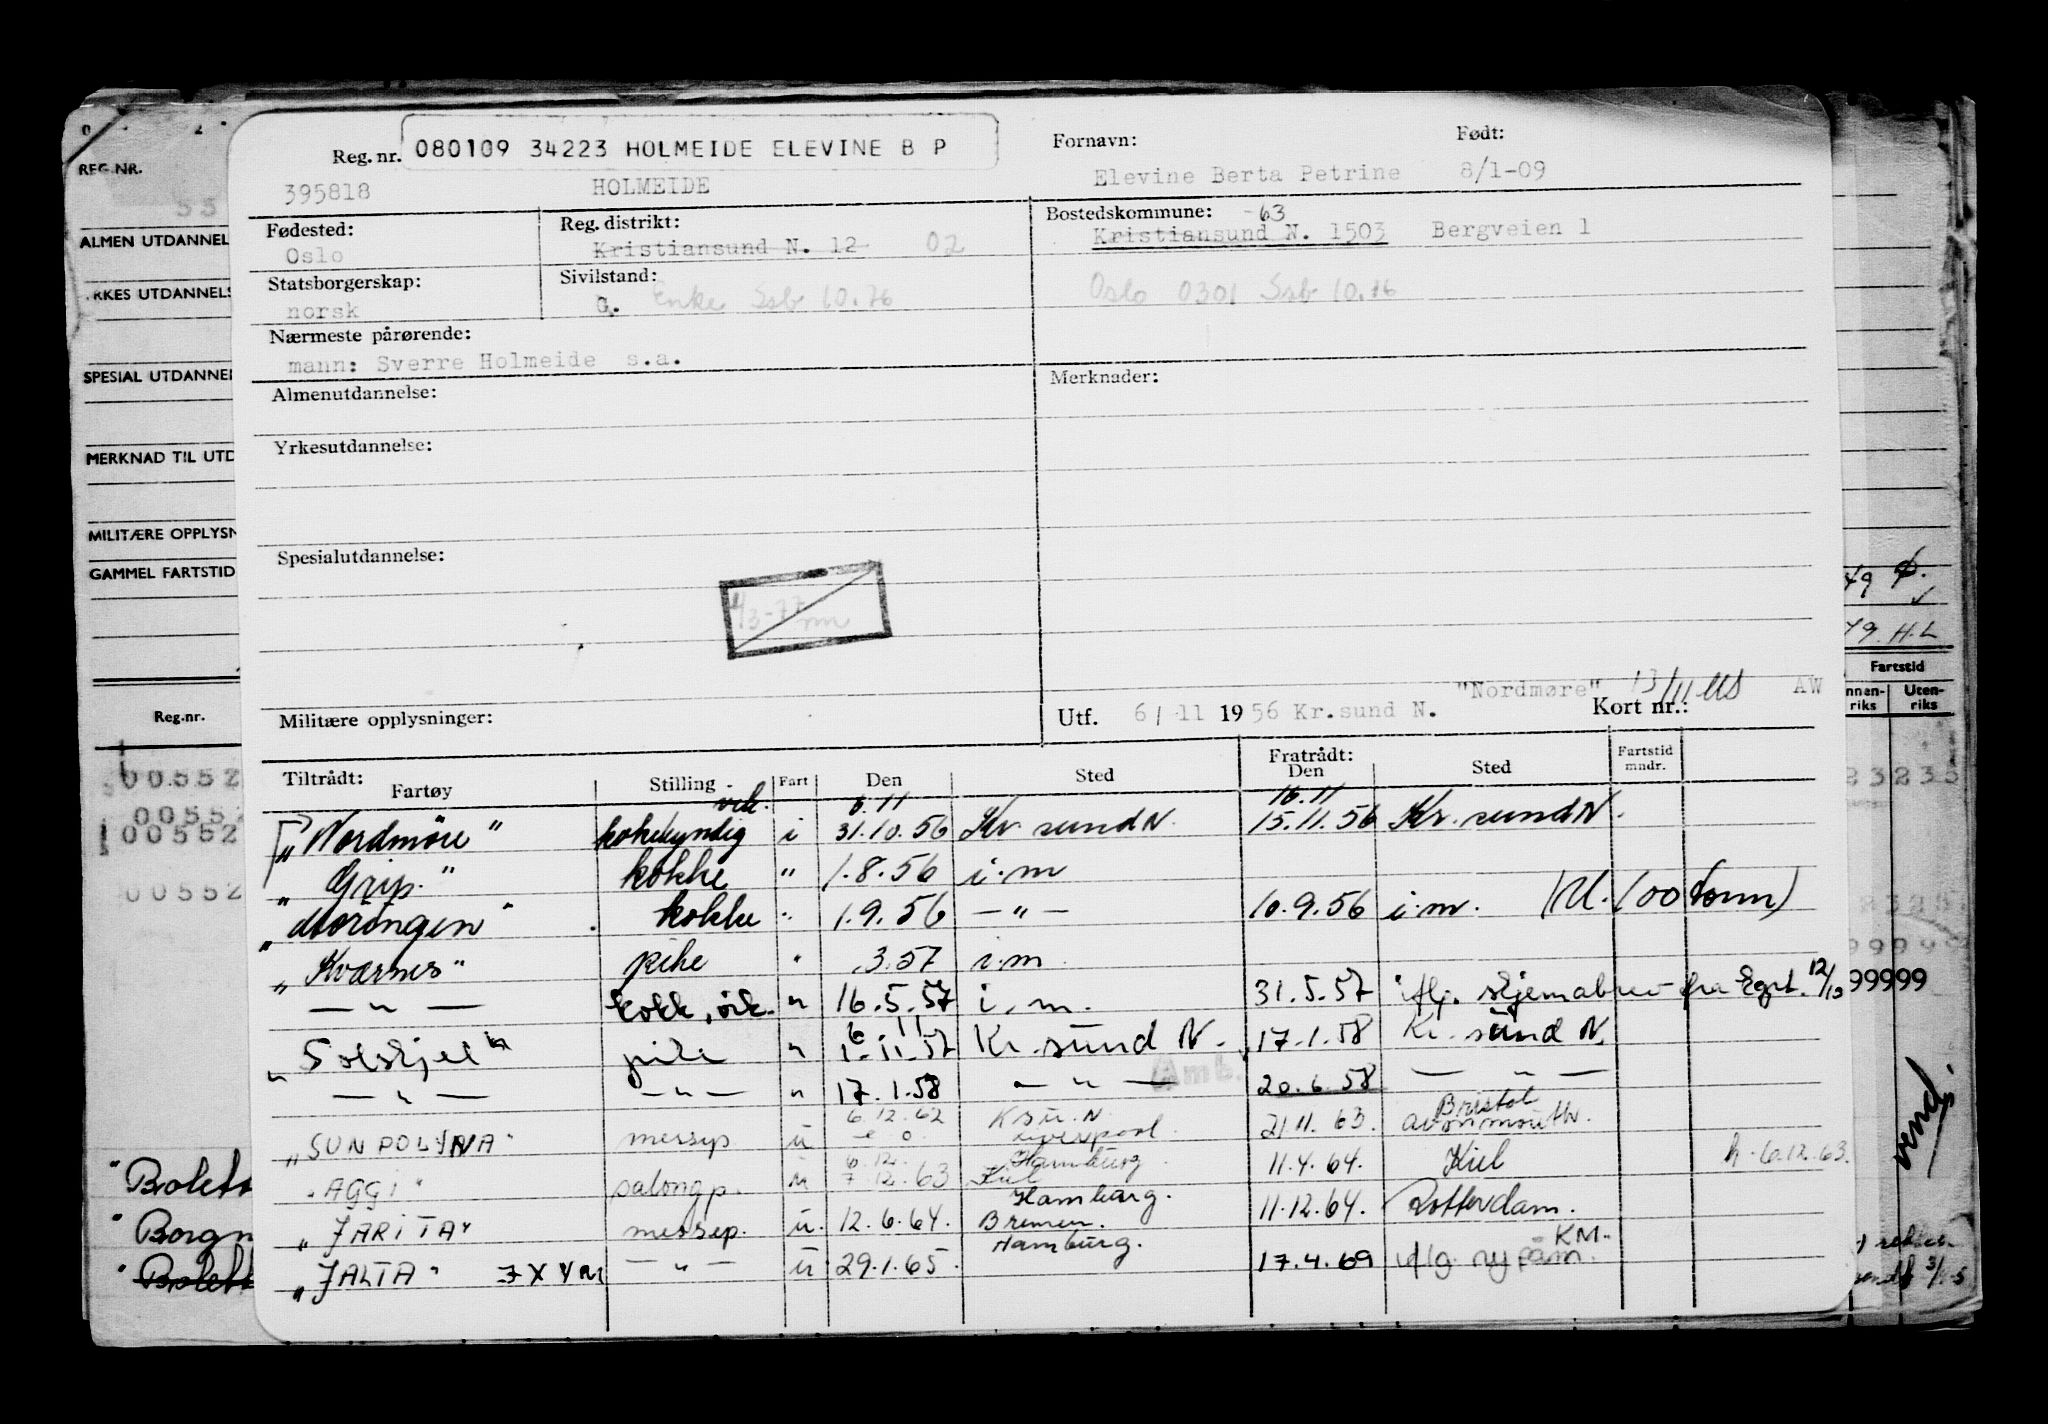 REG.NR.
ALMEN UTDANNEL
YRKES UTDANNELS
SPESIAL UTDANNEL
MERKNAD TIL UTD
MILITÆRE OPPLYSN
GAMMEL FARTSTID
Reg.nr.
00552
00552
00552
00552
Reg. nr. 080109 34223 HOLMEIDE ELEVINE B P Fornavn: Født:
395818 HOLMEIDE Elevine Berta Petrine 8/1-09
Fødested: Reg. distrikt: Bostedskommune: -63
Oslo Kristiansund N. 12 02 Kristiansund N. 1503 Bergveien 1
Statsborgerskap: Sivilstand:
norsk G. Enke Ssb 10.76 Oslo 0301 Ssb 10.76
Nærmeste pårørende:
mann: Sverre Holmeide s.a.
Almenutdannelse: Merknader:
Yrkesutdannelse:
Spesialutdannelse:
Militære opplysninger:
"Nordmøre" 13/11 AW
Utf. 6/ 11 1956 Kr.sund N. Kort nr.:
Tiltrådt: Fartøy Stilling Fart Den Sted Fratrådt: Den Sted Fartstid mndr.
6.11 16.11
"Nordmøre" kokekyndig i 31.10.56 Kr sund N. 15.11.56 Kr. sund N.
" Grip " kokke " 1.8.56 i.m
" kokke " 1.9.56 — " — 10.9.56 i.m. (U. 100 tonn)
" Kværnes " pike " .3.57 i.m
— " — kokk, " 16.5.57 i.m. 31.5.57 iflg. fra 12/13 99999
6.11
" Solskjel " pike " 1.11.57 Kr. sund N. 17.1.58 Kr. sund N.
— " — — " — " 17.1.58 — " — 20.6.58 — " —
6.12.62 Ksu. N Bristol
" SUNPOLYNA " messep u Liverpool 21.11.63. Avonmouth.
6.12. Hamburg
" AGGI " salongp. u 7.12.63 Kiel 11.4.64. Kiel h. 6.12.63.
Hamburg.
" JARITA " messep. u. 12.6.64. Bremen. 11.12.64. Rotterdam.
Hamburg. KM.
" JALTA " — " — u 29.1.65. 17.4.69 iflg. ny påm.
Fartstid
Innen-riks Uten-riks
vend.
" Bolett
" Borgn
" Bolett